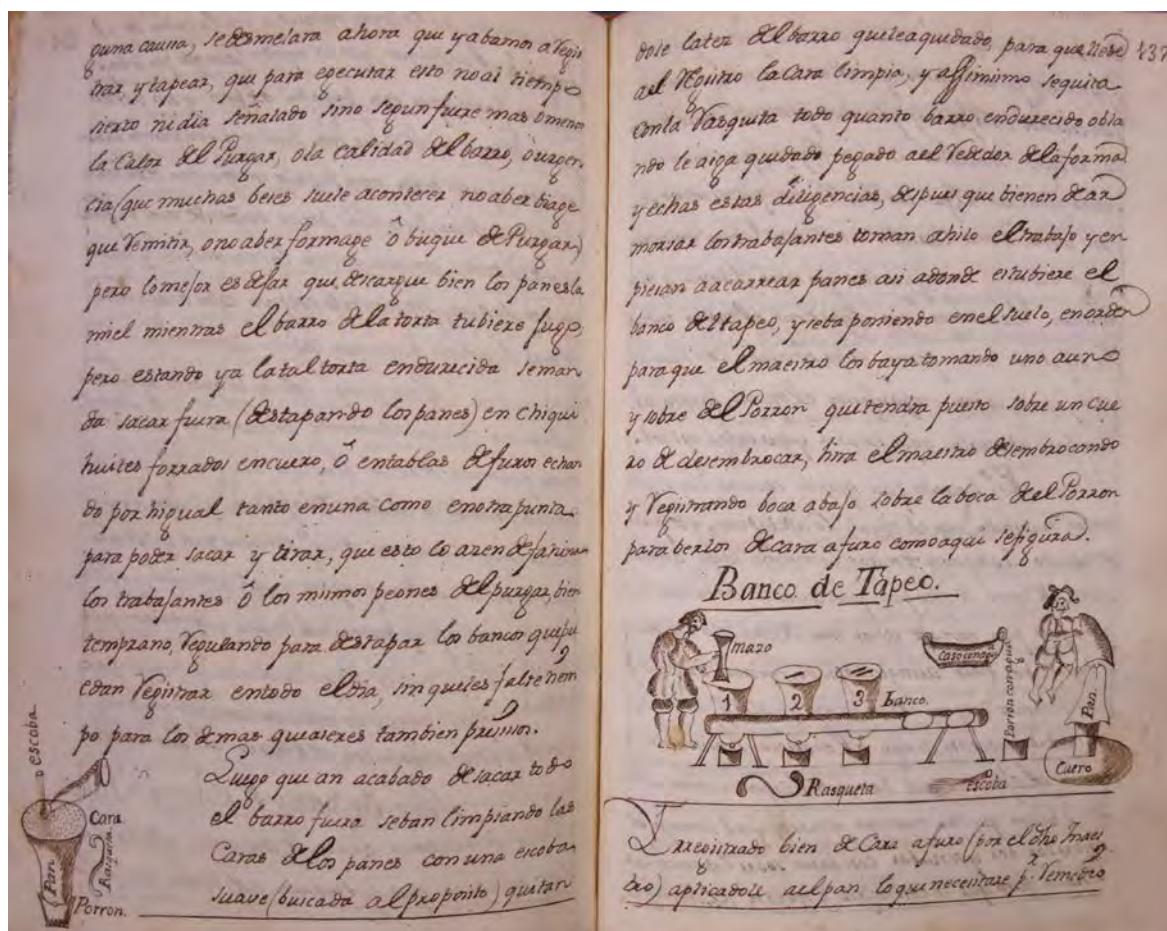 guna causa, se esmelara ahora que yabamos a Regis
trar, y tapear, que para egecutar esto no ai tiempo
sierto ni dia señalado sino segun fuere mas ô menos
la Calor del Purgar, o la calidad del barro, ô urgen
cia (que muchas beses suele acontecer no aber biage
que Remitir, o no aber formage ô buque de Purgar)
pero lo mejor es dejar que descargue bien los panes la
miel mientras el barro de la torta tubiere jugo,
pero estando ya la tal torta endurecida se man
da sacar fuera (destapando los panes) en chiqui
huites forrados en cuero, ô en tablas de furos echan
do por higual tanto en una como en otra punta
para poder sacar y tirar, que esto lo asen de fajina
los trabajantes ô los mismos peones del purgar, bien
temprano, Regulando para destapar los bancos que pu
edan Registrar en todo el dia, sin que les falte tiem
po para los demas quiaseres tambien presisos.
Luego que an acabado de sacar todo
el barro fuera se ban limpiando las
Caras de los panes con una escoba
suave (buscada al proposito) quitan
escoba
Cara
Rasqueta
Pan
Porron.
437
dole later del barro que lea quedado, para que lleve
ael Registro la Cara limpia, y assimismo se quita
con la Rasqueta todo quanto barro endurecido o bla
ndo le aiga quedado pegado ael Rededor de la forma
y echas estas diligencias, despues que bienen de ar
morsar los trabajantes toman a hilo el trabajo y en
piesan a acarrear panes asi adonde estubiere el
banco del tapeo, y se ba poniendo en el suelo, en orden
para que el maestro los baya tomando uno a uno
y sobre del Porron que tendra puesto sobre un cue
ro de desembrocar, hira el maestro desembrocando
y Registrando boca abajo sobre la boca del Porron
para berlos de cara a furo como aqui se figura.
Banco de Tapeo.
mazo
1
2
3
banco.
Caso con agua
Porron con agua
Pan
Cuero
Rasqueta
escoba
Y rregistrado bien de Cara a furo (por el dho Maes
tro) aplicadole ael pan lo que necesitare pr. Remedio